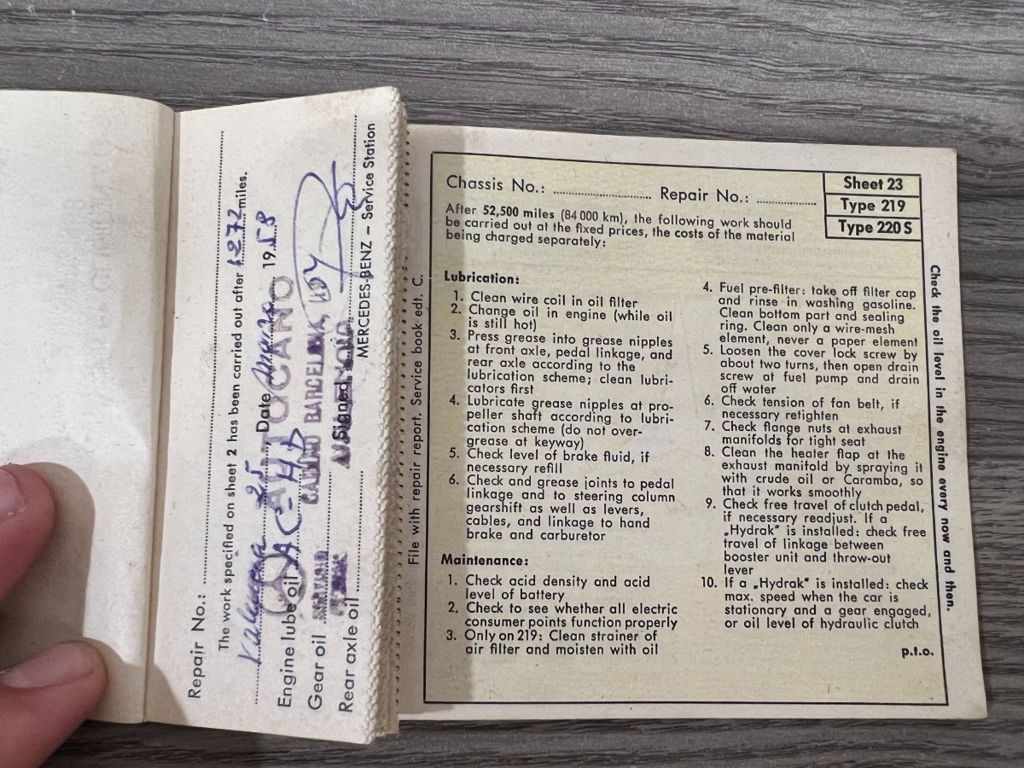 Repair No.:
The work specified on sheet 2 has been carried out after 1.272 miles.
25, Date 1958
Engine lube oil
Gear oil
Signed
Rear axle oil
MERCEDES-BENZ – Service Station
AUTOCANO
File with repair report. Service book edt. C.
Chassis No.: Repair No.:
Sheet 23
Type 219
Type 220 S
After 52,500 miles (84 000 km), the following work should
be carried out at the fixed prices, the costs of the material
being charged separately:
Lubrication:
1. Clean wire coil in oil filter
2. Change oil in engine (while oil
is still hot)
3. Press grease into grease nipples
at front axle, pedal linkage, and
rear axle according to the
lubrication scheme; clean lubri-
cators first
4. Lubricate grease nipples at pro-
peller shaft according to lubri-
cation scheme (do not over-
grease at keyway)
5. Check level of brake fluid, if
necessary refill
6. Check and grease joints to pedal
linkage and to steering column
gearshift as well as levers,
cables, and linkage to hand
brake and carburetor
Maintenance:
1. Check acid density and acid
level of battery
2. Check to see whether all electric
consumer points function properly
3. Only on 219: Clean strainer of
air filter and moisten with oil
4. Fuel pre-filter: take off filter cap
and rinse in washing gasoline.
Clean bottom part and sealing
ring. Clean only a wire-mesh
element, never a paper element
5. Loosen the cover lock screw by
about two turns, then open drain
screw at fuel pump and drain
off water
6. Check tension of fan belt, if
necessary retighten
7. Check flange nuts at exhaust
manifolds for tight seat
8. Clean the heater flap at the
exhaust manifold by spraying it
with crude oil or Caramba, so
that it works smoothly
9. Check free travel of clutch pedal,
if necessary readjust. If a
„Hydrak" is installed: check free
travel of linkage between
booster unit and throw-out
lever
10. If a „Hydrak" is installed: check
max. speed when the car is
stationary and a gear engaged,
or oil level of hydraulic clutch
p.t.o.
Check the oil level in the engine every now and then.